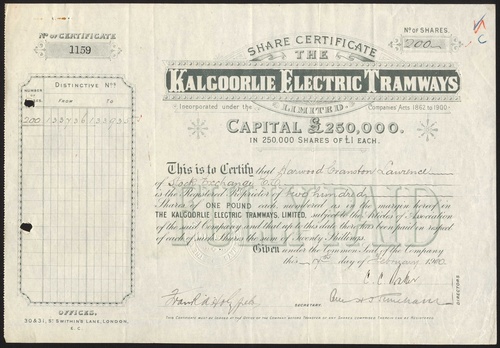 Nº OF CERTIFICATE
1159
Nº OF SHARES.
200
SHARE CERTIFICATE
THE
KALGOORLIE ELECTRIC TRAMWAYS
LIMITED.
Incorporated under the Companies Acts 1862 to 1900.
CAPITAL £250,000.
IN 250,000 SHARES OF £1 EACH.
DISTINCTIVE Nºs
NUMBER OF SHARES
FROM TO
200
This is to Certify that Harwood Cranston Lawrence
of Stock Exchange
is the Registered Proprietor of two hundred
Shares of ONE POUND each, numbered as in the margin hereof in
THE KALGOORLIE ELECTRIC TRAMWAYS, LIMITED, subject to the Articles of Association
of the said Company and that up to this date there has been paid in respect
of each of such Shares the sum of Twenty Shillings.
Given under the Common Seal of the Company
this day of February
DIRECTORS
SECRETARY
OFFICES.
30 & 31, ST SWITHIN'S LANE, LONDON,
E.C.